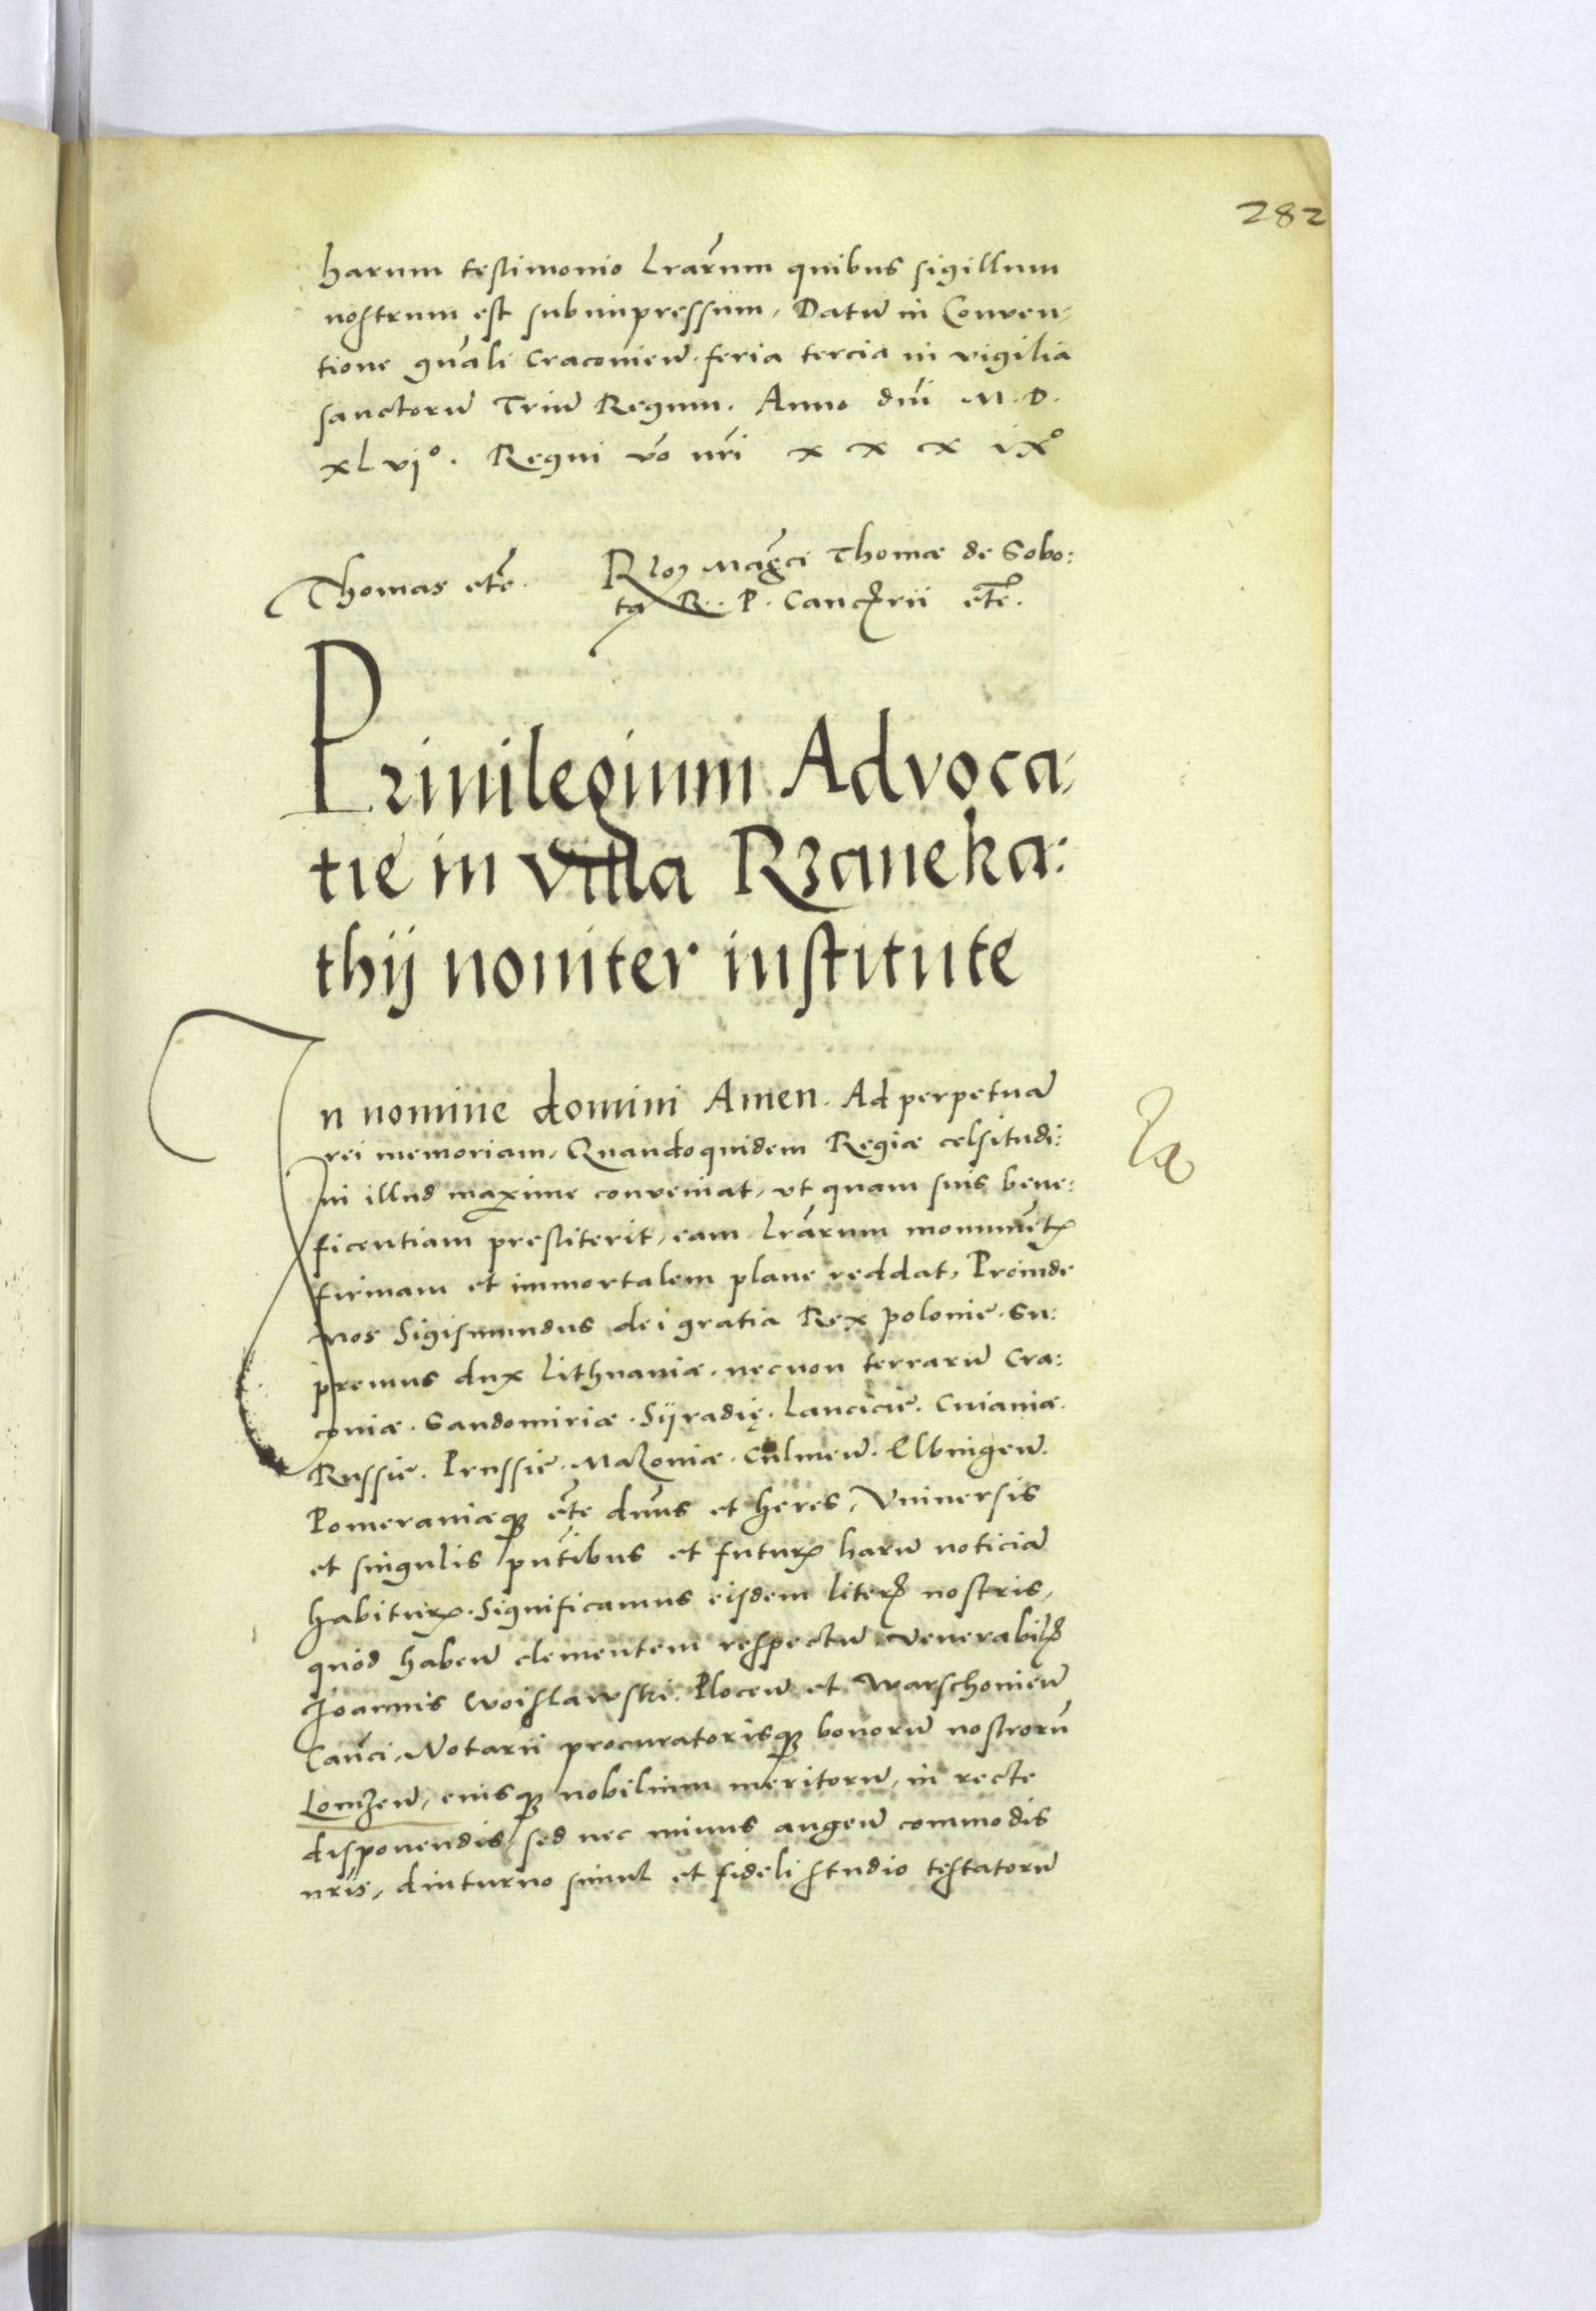 282
harum testimonio Lrarum quibus sigillum
nostrum est subimpressum, Datum in Conven,
tione gnali Cracovien feria tercia in vigilia
sanctorum Trium Regum. Anno dni M. D.
XL vi°. Regni vo nri x x x ix°
Thomas etc. Rlo Magci Thomæ de Sobo:
ta R. P. Cancrii etc.
Privilegium Advoca,
tie in villa Rzaneka:
thij noviter institute
In nomine domini Amen. Ad perpetuam
rei memoriam, Quandoquidem Regiæ celsitudi:
ni illud maxime conveniat, ut quam suis bene:
ficentiam prestiterit, eam Lrarum monument
firmam et immortalem plane reddat, Proinde
nos Sigismundus dei gratia Rex polonie. Su:
premus dux Lithvaniæ. necnon terrarum Cra:
coviæ. Sandomiriæ. Syradię. Lancicie. Cuiaviæ.
Russie. Prussie. Mazoviæ. Culmen. Elbingen.
Pomeraniæq etc dnus et heres, Universis
et singulis pntibus et futur harum noticiam
habitur. Significamus eisdem liter nostris,
quod haben clementem respectum Venerabil
Joannis Woislawski. Plocen et Warschovien
Canci, Notarii procuratorisq bonorum nostrorum
Lomzen, eiusq nobilium meritorum, in recte
disponendis, sed nec minus augen commodis
nris, diuturno simul et fideli studio testatorum